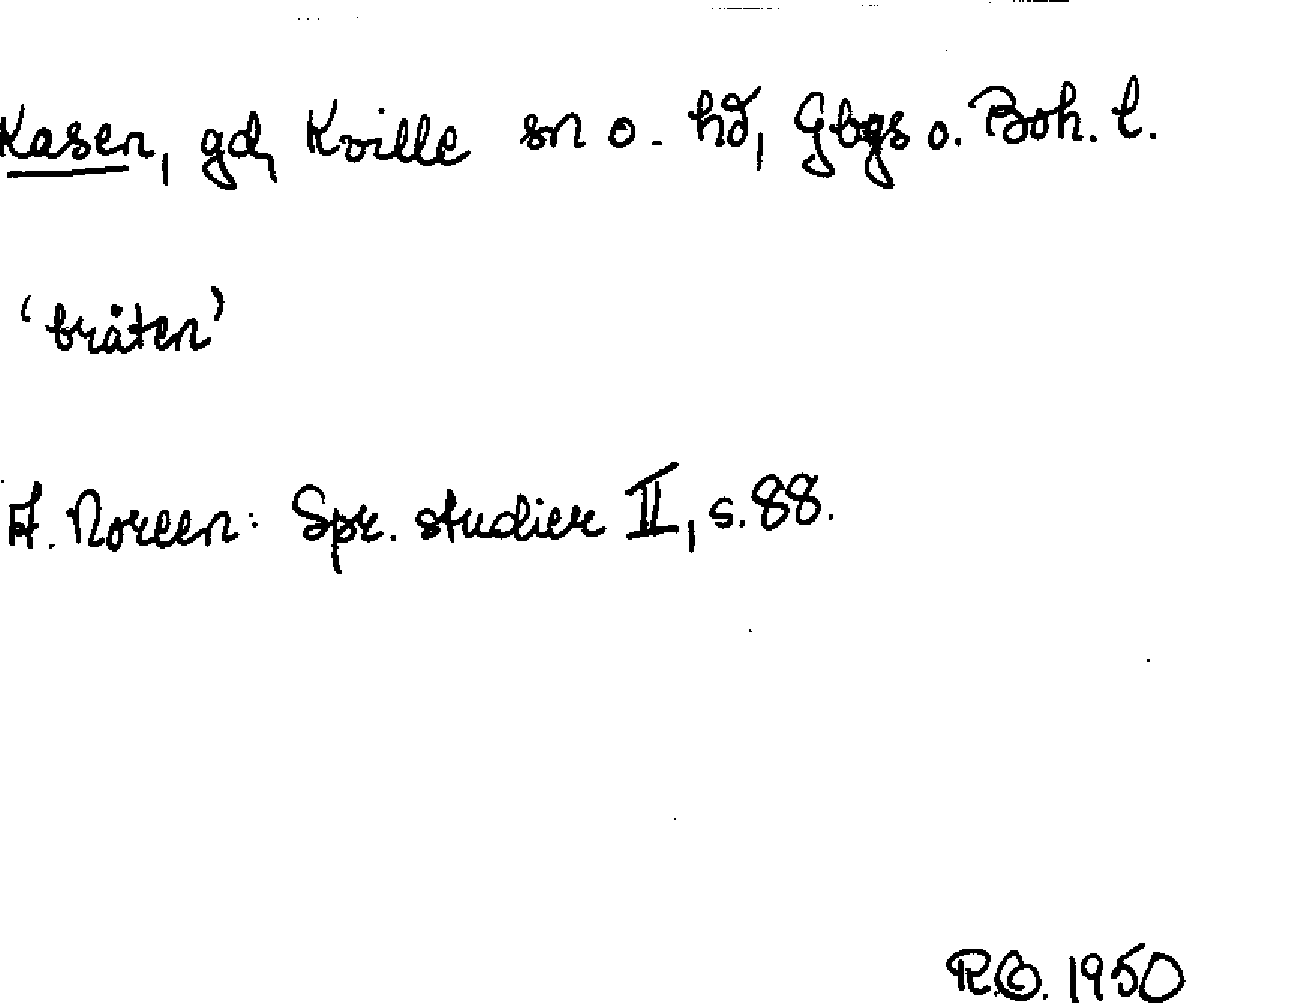 Kasen, gd, Kville sn o. hd, Gbgs o. Boh. l.
'bråten'
A. Noreen: Spr. studier II, s. 88.
R.G. 1950